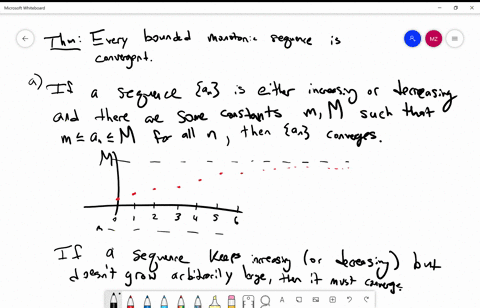 Microsoft Whiteboard
Thm: Every bounded monotonic sequence is
convergent.
MZ
a) If a sequence {aₙ} is either increasing or decreasing
and there are some constants m, M such that
m ≤ aₙ ≤ M for all n, then {aₙ} converges.
M
0 1 2 3 4 5 6
m
If a sequence keeps increasing (or decreasing) but
doesn't grow arbitrarily large, then it must converge